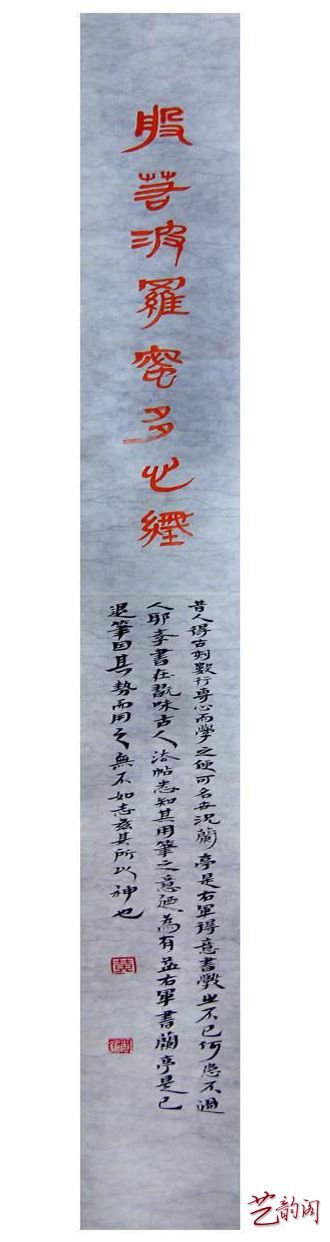 般若波羅蜜多心經
昔人得古刻數行專心而學之便可名世況蘭亭是右軍得意書學之不已何患不過
人耶學書在翫味古人法帖悉知其用筆之意廼為有益右軍書蘭亭是已
退筆因其勢而用之無不如志茲其所以神也
艺韵阁